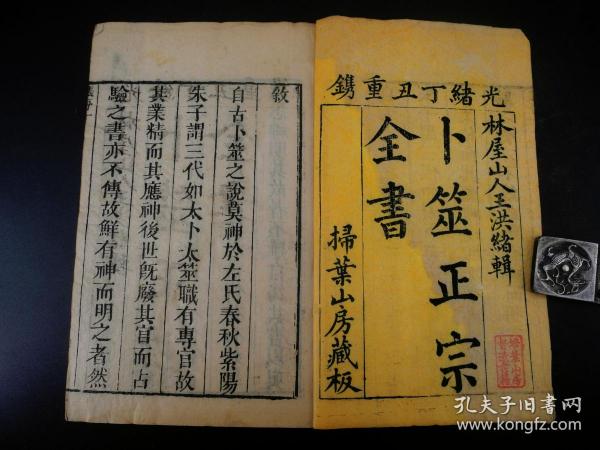 光緒丁丑重鐫
林屋山人王洪緒輯
卜筮正宗
全書
掃葉山房藏板
敘
自古卜筮之說莫神於左氏春秋紫陽
朱子謂三代如太卜太筮職有專官故
其業精而其應神後世旣廢其官而占
驗之書亦不傳故鮮有神而明之者然
孔夫子旧书网
www.kongfz.com